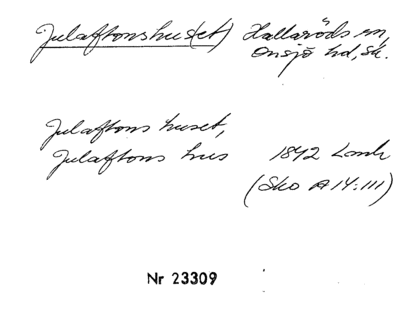 Julaftonshus(et) Hallaröds sn,
Onsjö hd, Sk.
Julaftons huset,
Julaftons hus 1842 Lantm
(Sko A 14:111)
Nr 23309